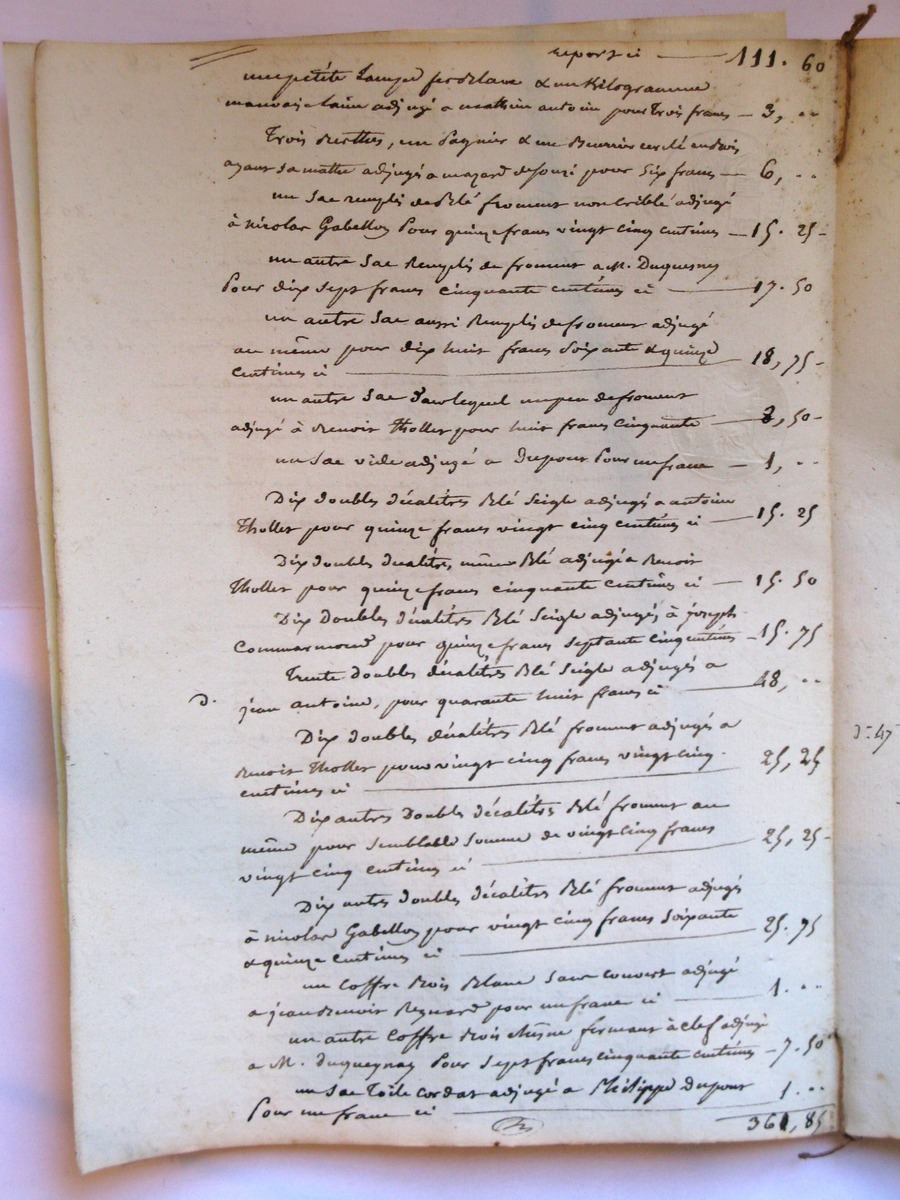 report ci 111. 60
une petite Lampe fer Blanc & un Kilogramme
mauvaise laine adjugé a mathieu antoine pour trois francs 3, ..
Trois , un Pagnier & une Beurrière cerclé en bois
ayant sa adjugés a mazard de pour Six francs 6, ..
un Sac rempli de Blé froment non Criblé adjugé
à nicolas Gabellon Pour quinze francs vingt cinq centimes 15. 25
un autre Sac Remplis de froment a M. Duquesnay
Pour dix sept francs cinquante centimes ci 17. 50
un autre Sac aussi Remplis de froment adjugé
au même pour dix huit francs Soixante & quinze
centimes ci 18, 75
un autre Sac dans lequel un peu de froment
adjugé à Benoit Thollet pour huit francs Cinquante 8, 50
un Sac vide adjugé a Dupont Pour un franc 1, ..
Dix doubles décalitres Blé Seigle adjugés a antoine
Thollet pour quinze francs vingt cinq centimes ci 15. 25
Dix doubles decalitres même Blé adjugé a Benoit
Thollet pour quinze francs cinquante centimes ci 15. 50
Dix Doubles décalitres Blé Seigle adjugés à joseph
Commarmond pour quinze francs septante cinq centimes 15. 75
Trente doubles décalitres Blé Seigle adjugés a
d. jean antoine, pour quarante huit francs ci 48, ..
Dix Doubles décalitres Blé froment adjugés a
Benoit Thollet pour vingt cinq francs vingt cinq
centimes ci 25, 25
Dix autres Doubles décalitres Blé froment au
même pour Semblable Somme de vingt cinq francs
vingt cinq centimes ci 25, 25
Dix autres doubles décalitres Blé froment adjugés
à nicolas Gabellon pour vingt cinq francs Soixante
& quinze centimes ci 25. 75
un Coffre Bois Blanc Sans couvert adjugé
a jean Benoit Reynard pour un franc ci 1. ..
un autre Coffre Bois Chêne fermant à clef adjugé
a M. Duquesnay Pour Sept francs cinquante centimes 7. 50
un Sac Toile Cordat adjugé a Philippe Dupont
Pour un franc ci 1 ..
361, 85